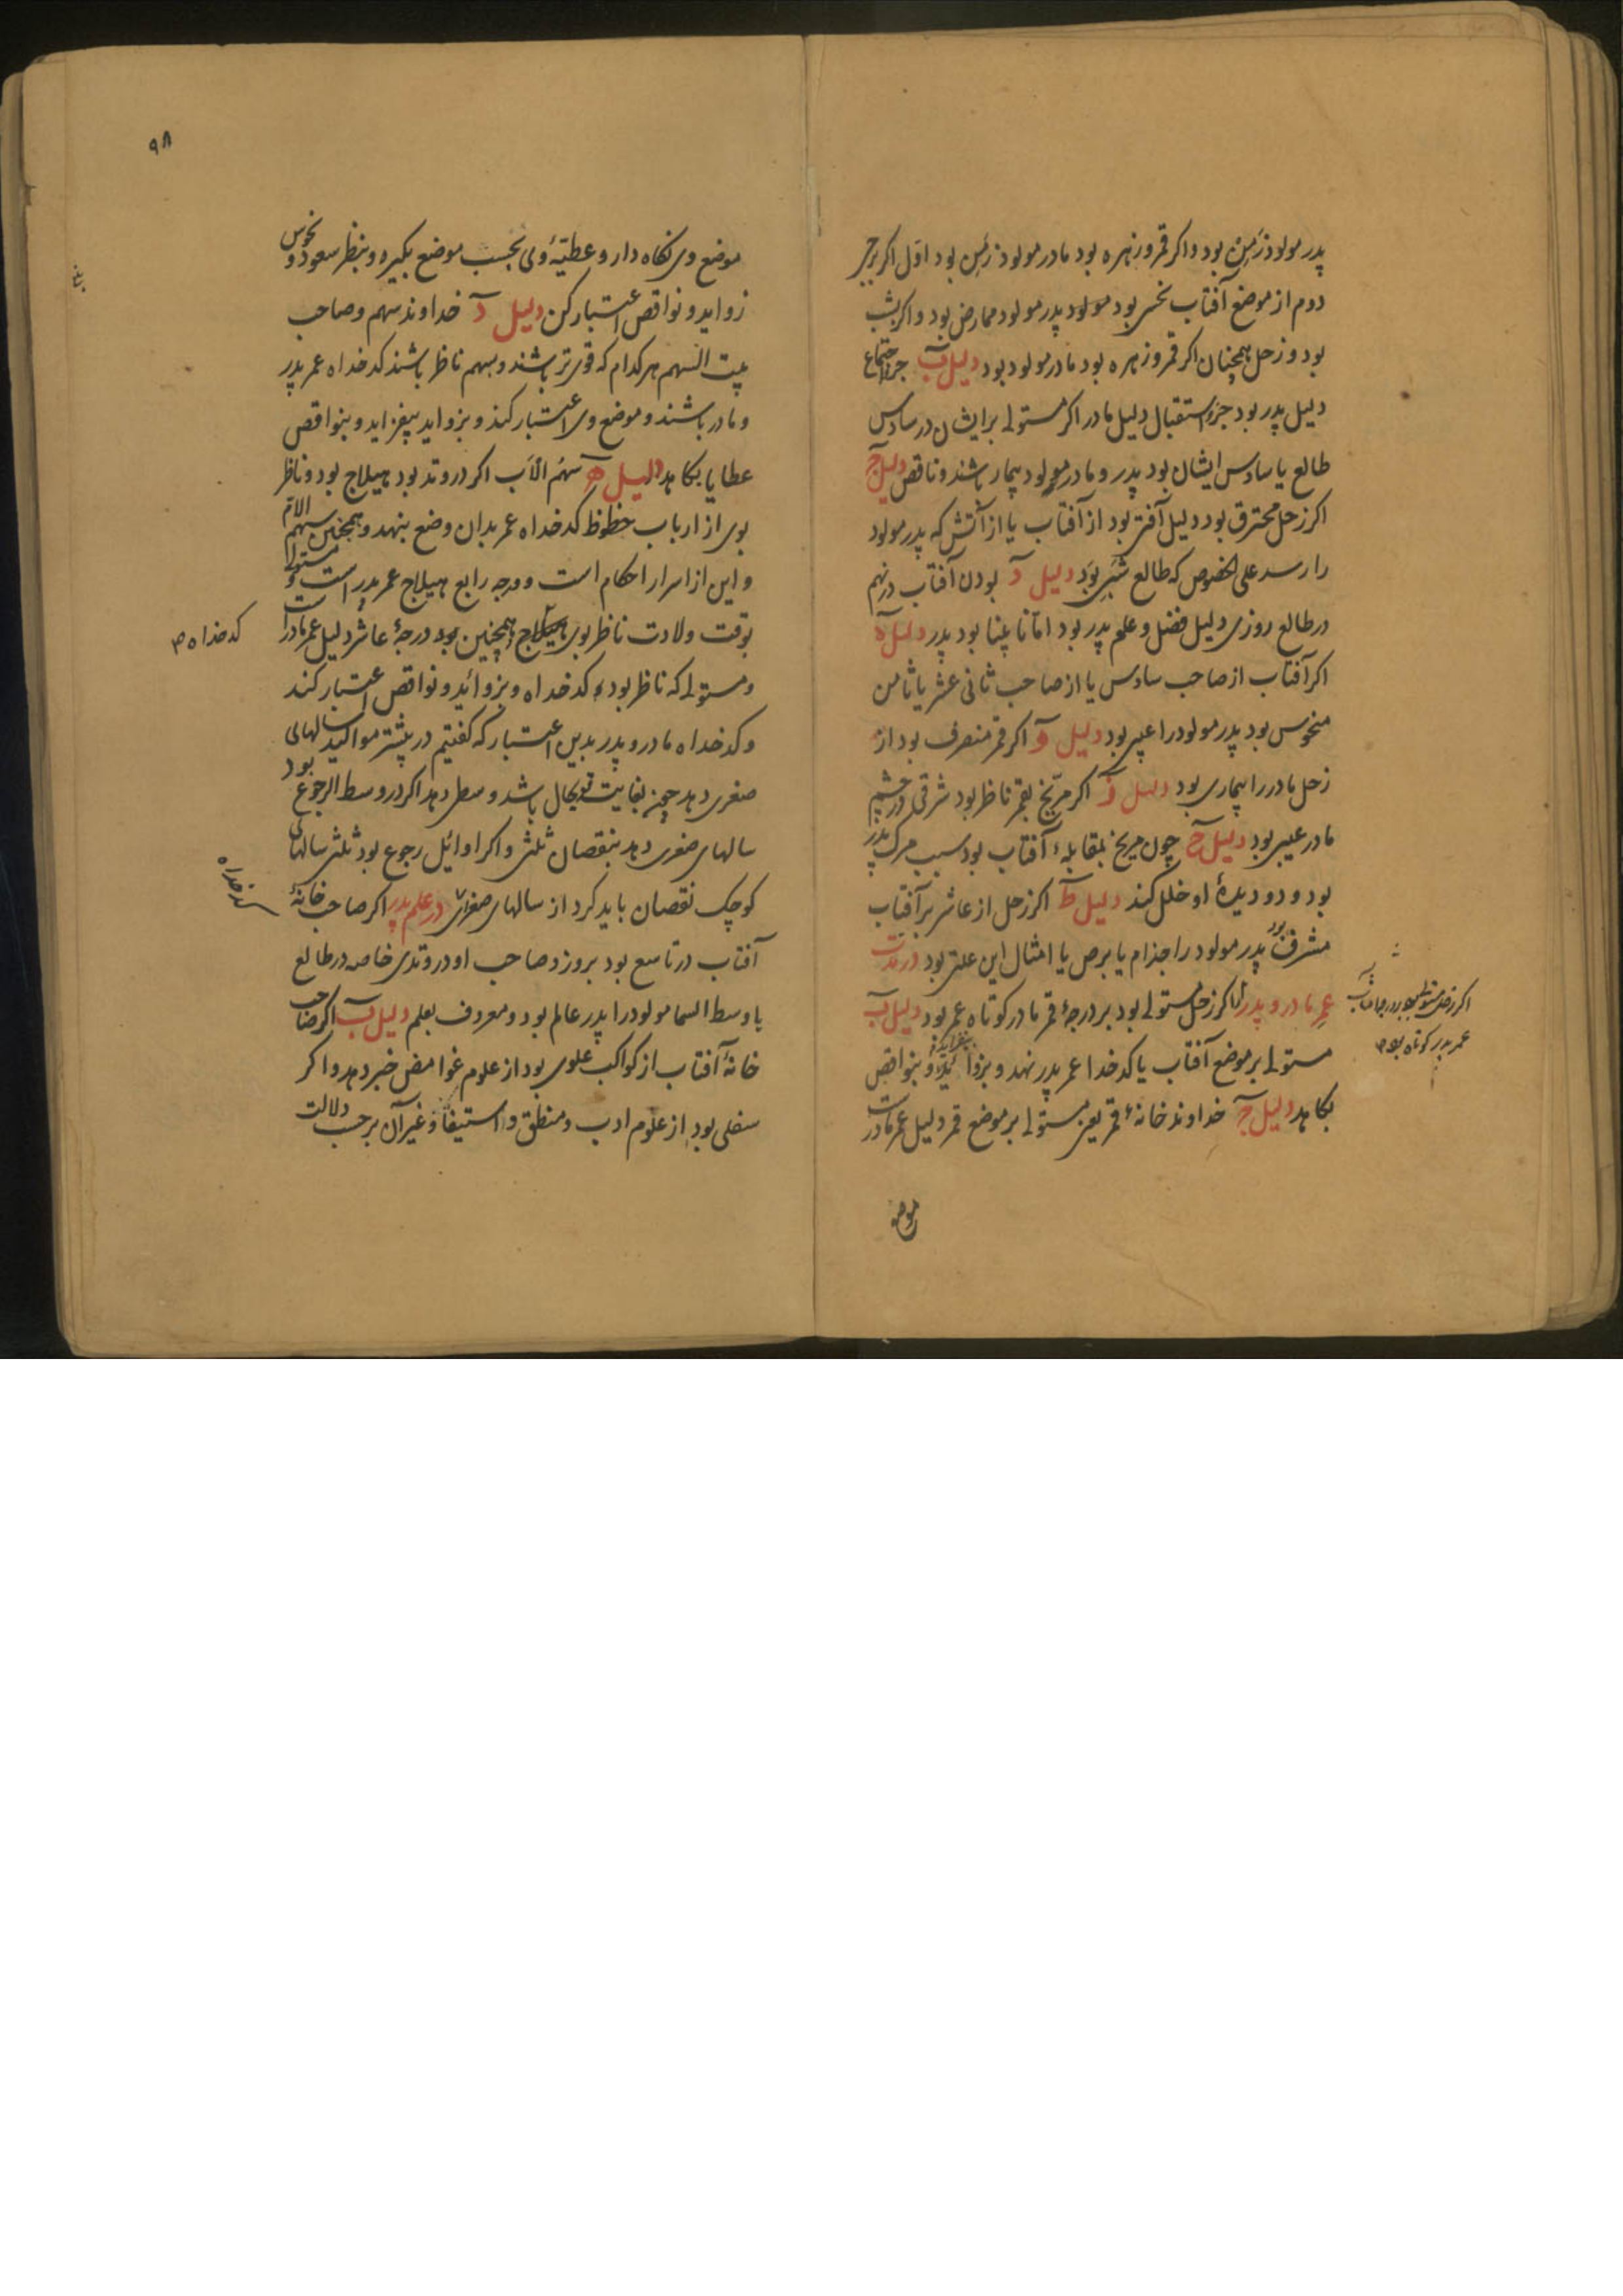 پدر مولود زمِن بود و اکر قمر و زهره بود مادر مولود زمِن بود اوّل اکر برج
دوم از موضع آفتاب نحس بود مولود پدر مولود ممارض بود و اکر بشب
بود و زحل همچنان اکر قمر و زهره بود مادر مولود بود دلیل ب جزؤ اجتماع
دلیل پدر بود جزؤ استقبال دلیل مادر اکر مستولی بر ایشان در سادس
طالع یا سادس ایشان بود پدر و مادر مولود بیمار باشند و ناقص دلیل ج
اکر زحل محترق بود دلیل آفتی بود از آفتاب یا از آتش که پدر مولود
را رسد علی الخصوص که طالع شبی بوَد دلیل د بودن آفتاب در نهم
در طالع روزی دلیل فضل و علم پدر بود امّا نابینا بود پدر دلیل ه
اکر آفتاب از صاحب سادس یا از صاحب ثانی عشر یا ثامن
منحوس بود پدر مولود را عیبی بود دلیل و اکر قمر منصرف بود از
زحل مادر را بیماری بود دلیل ز اکر مرّیخ بقمر ناظر بود شرقی در چشم
مادر عیبی بود دلیل ح چون مریخ بمقابلهٔ آفتاب بود سبب مرک پدر
بود و دو دیدهٔ او خلل کند دلیل ط اکر زحل از عاشر بر آفتاب
مشرف بود پدر مولود را جذام یا برص یا امثال این علتی بود در مدّت
عمر مادر و پدر اکر زحل مستولی بود بر درجهٔ قمر مادر کوتاه عمر بود دلیل ب
عمر پدر کوتاه بود
مستولی بر موضع آفتاب یا کدخدا عمر پدر نهد و بزواید بیفزاید و بنواقص
بکاهد دلیل ج خداوند خانهٔ قمر یعنی مستولی بر موضع قمر دلیل عمر مادرست
موضع
۹۸
موضع وی نکاه دار و عطیّهٔ وی بحسب موضع بکیر و بنظر سعود و نحوس
زواید و نواقص اعتبار کن دلیل د خداوند سهم و صاحب
بیت السهم هر کدام که قوی تر باشند و بسهم ناظر باشند کدخداه عمر پدر
و مادر باشند و موضع وی اعتبار کنند و بزواید بیفزاید و بنواقص
عطایا بکاهد دلیل ه سهم الاَب اکر در وتد بود هیلاج بود و ناظر
بوی از ارباب حظوظ کدخداه عمر بدان وضع بنهد و همچنین سهم الامّ
و این از اسرار احکام است و درجه رابع هیلاج عمر پدر است و مستولی
بوقت ولادت ناظر بوی هیلاج و همچنین بود درجهٔ عاشر دلیل عمر مادر است
کدخداه
و مستولی که ناظر بود کدخداه و بزواید و نواقص اعتبار کنند
و کدخداه مادر و پدر بدین اعتبار که کفتیم در بیشتر موالید سالهای
صغری دهد چون بغایت قوی حال باشد وسطی دهد اکر در وسط الرجوع بود
سالهای صغری دهد بنقصان ثلثی و اکر اوائل رجوع بود ثلثی سالهای
کوچک نقصان باید کرد از سالهای صغرای در علم پدر اکر صاحب خانهٔ
آفتاب در تاسع بود بروز و صاحب او در وتدی خاصه در طالع
یا وسط السما مولود را پدر عالم بود و معروف بعلم دلیل ب اکر صاحب
خانهٔ آفتاب از کواکب علوی بود از علوم غوامض خبر دهد و اکر
سفلی بود از علوم ادب و منطق و استیفا و غیر آن بر حسب دلالت